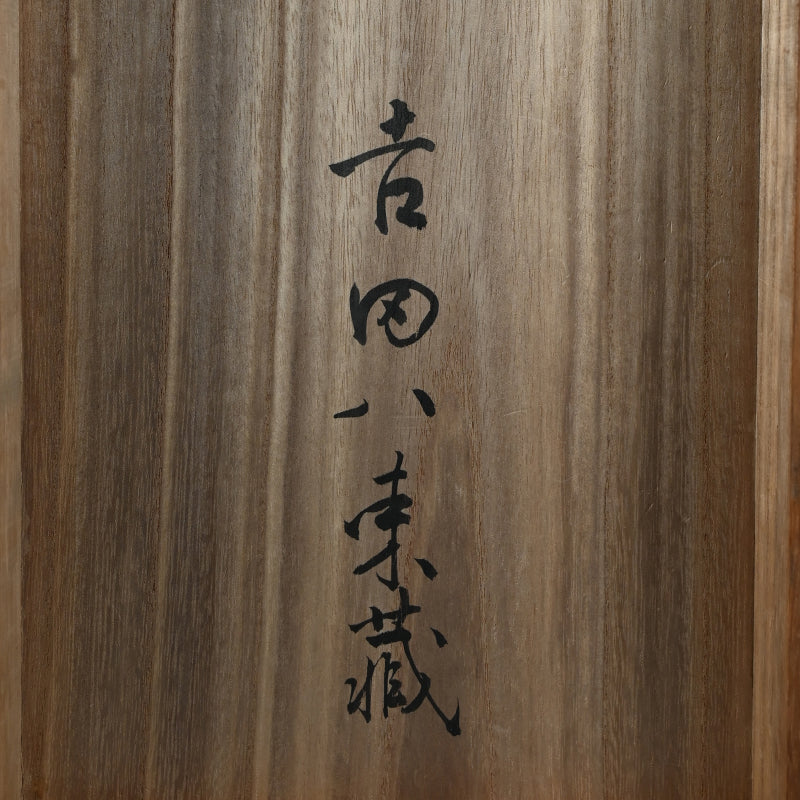 吉田八東藏